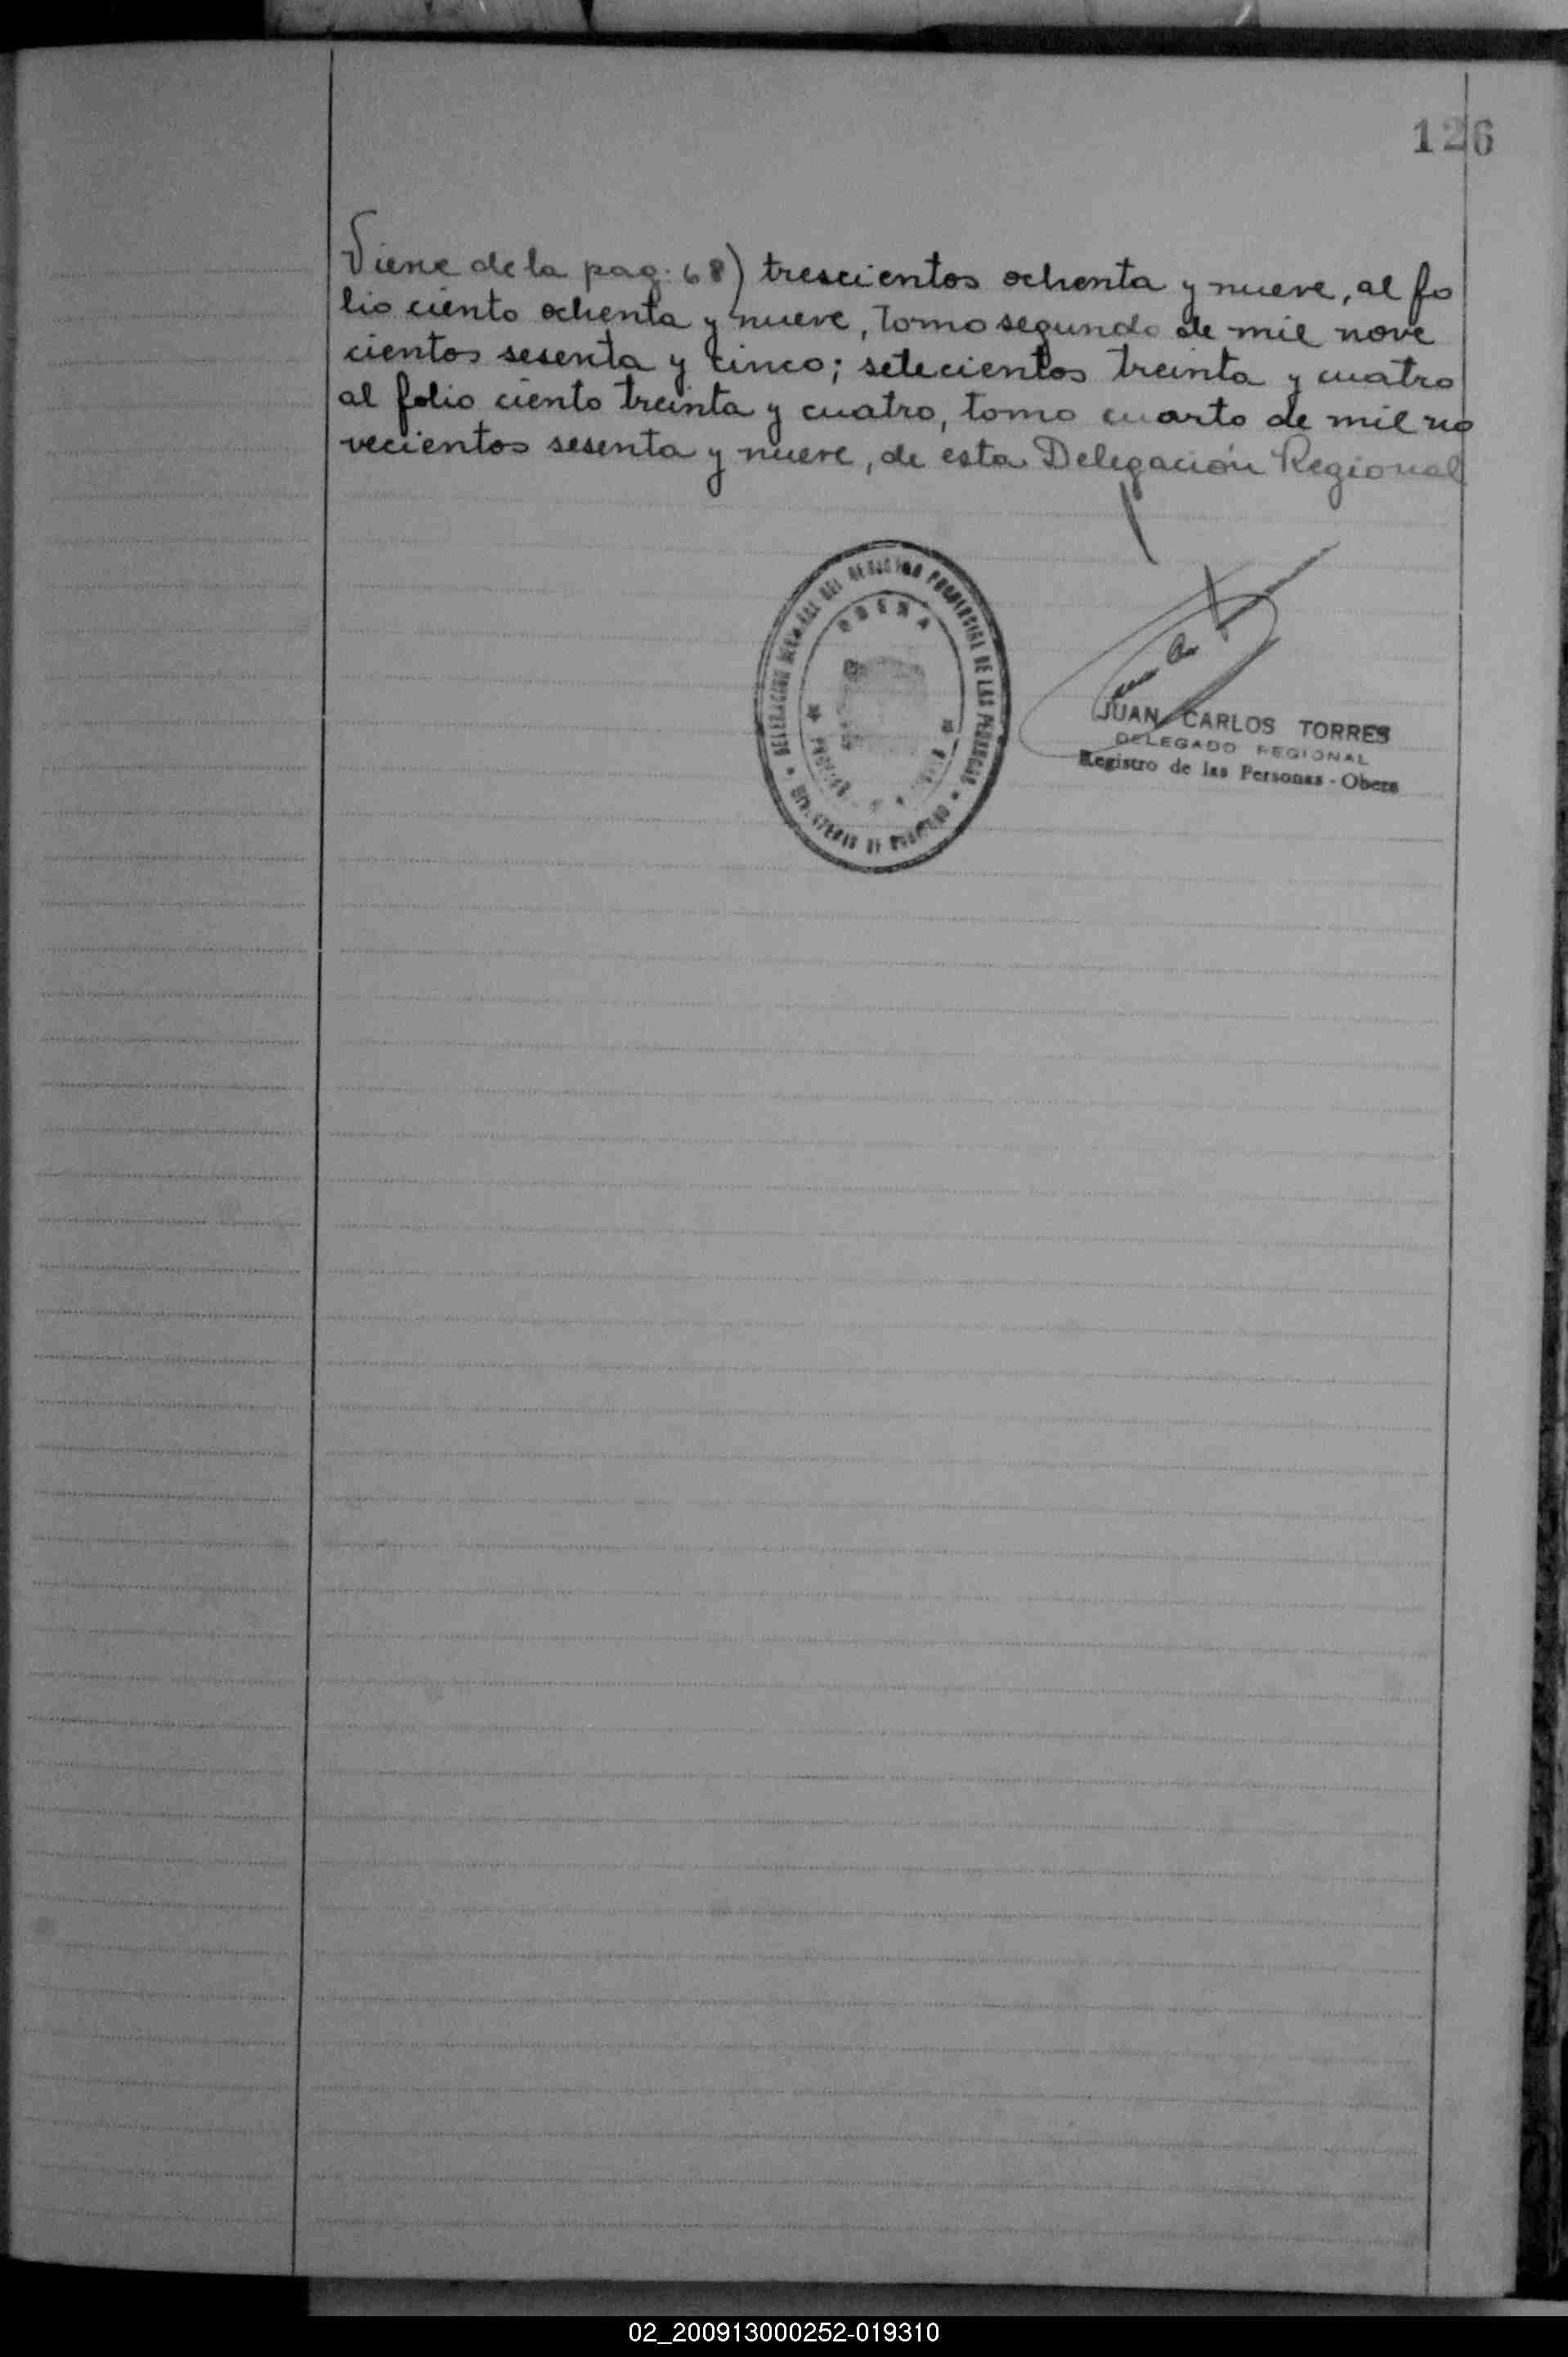 126
Viene de la pag. 68) trescientos ochenta y nueve, al fo
lio ciento ochenta y nueve, Tomo segundo de mil nove
cientos sesenta y cinco; setecientos treinta y cuatro
al folio ciento treinta y cuatro, tomo cuarto de mil no
vecientos sesenta y nueve, de esta Delegación Regional
DE LAS PERSONAS
OBERA
JUAN CARLOS TORRES
DELEGADO REGIONAL
Registro de las Personas - Obera
02_200913000252-019310